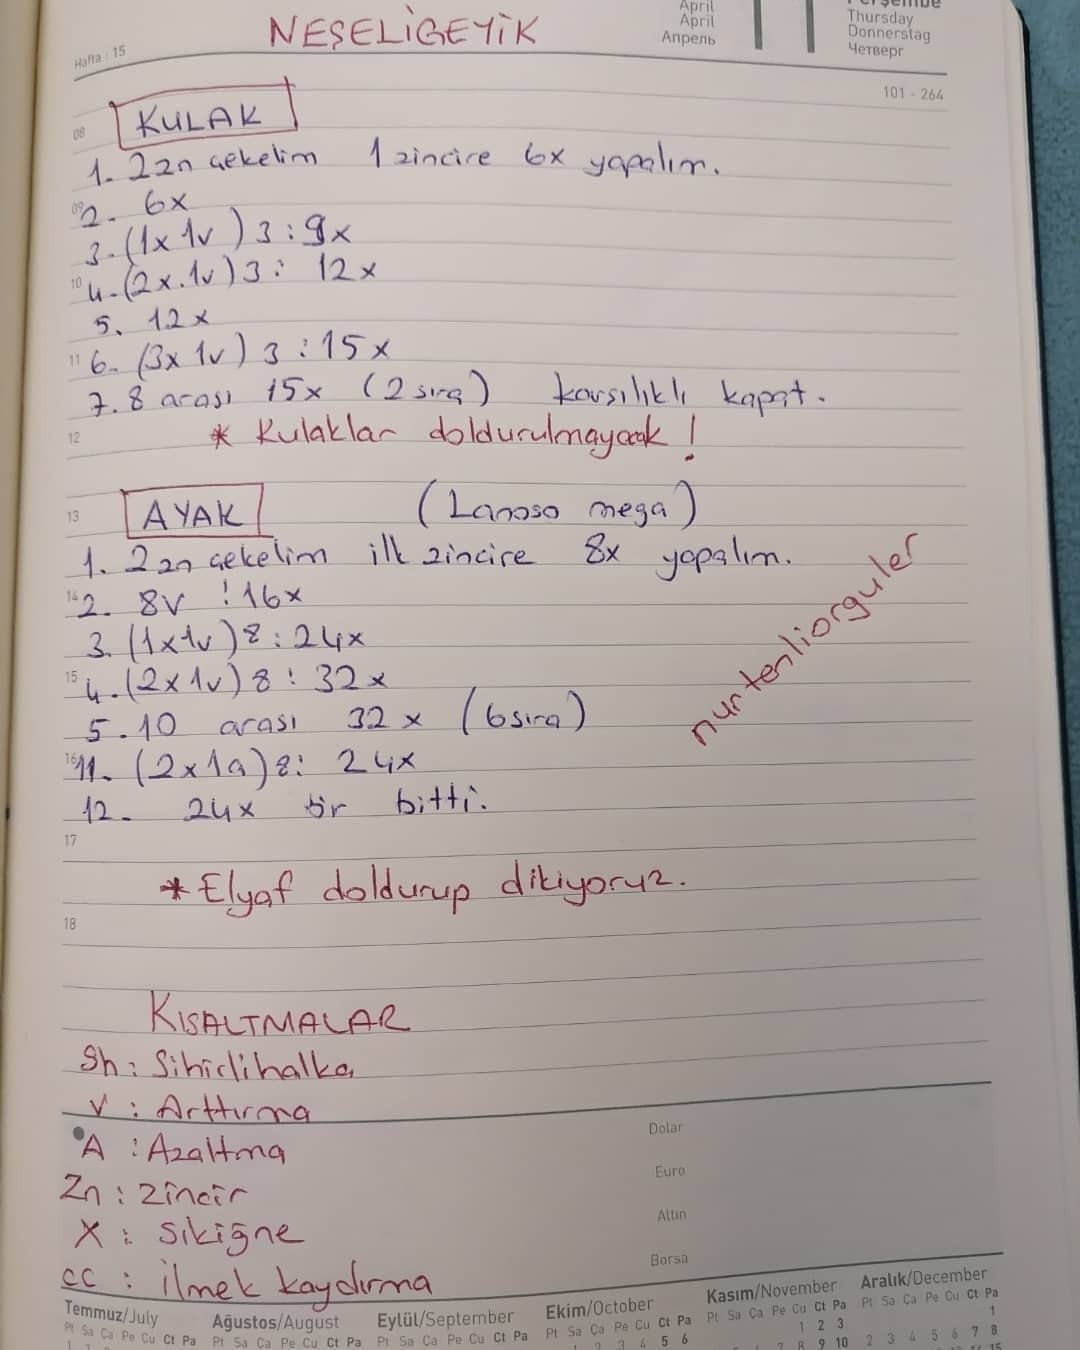 Hafta : 15
NEŞELİGEYİK
April
April
Апрель
11
Perşembe
Thursday
Donnerstag
Четверг
101 - 264
08
KULAK
1. 2zn çekelim 1 zincire 6x yapalım.
09
2. 6x
3. (1x 1v) 3 : 9x
10
4. (2x.1v) 3 : 12x
5. 12x
11
6. (3x 1v) 3 : 15x
7. 8 arası 15x (2 sıra) karşılıklı kapat.
12
* Kulaklar doldurulmayacak !
13
AYAK (Lanoso mega)
1. 2zn çekelim ilk zincire 8x yapalım.
14
2. 8v : 16x
3. (1x1v) 8 : 24x
15
4. (2x1v) 8 : 32x
5. 10 arası 32x (6sıra)
16
11. (2x1a) 8: 24x
12. 24x ör bitti.
nurtenliorguler
17
* Elyaf doldurup dikiyoruz.
18
KISALTMALAR
Sh : Sihirlihalka
V : Arttırma
A : Azaltma
Zn : Zincir
X : Sıkiğne
cc : ilmek kaydırma
Dolar
Euro
Altın
Borsa
Temmuz/July Ağustos/August Eylül/September Ekim/October Kasım/November Aralık/December
Pt Sa Ça Pe Cu Ct Pa Pt Sa Ça Pe Cu Ct Pa Pt Sa Ça Pe Cu Ct Pa Pt Sa Ça Pe Cu Ct Pa Pt Sa Ça Pe Cu Ct Pa Pt Sa Ça Pe Cu Ct Pa